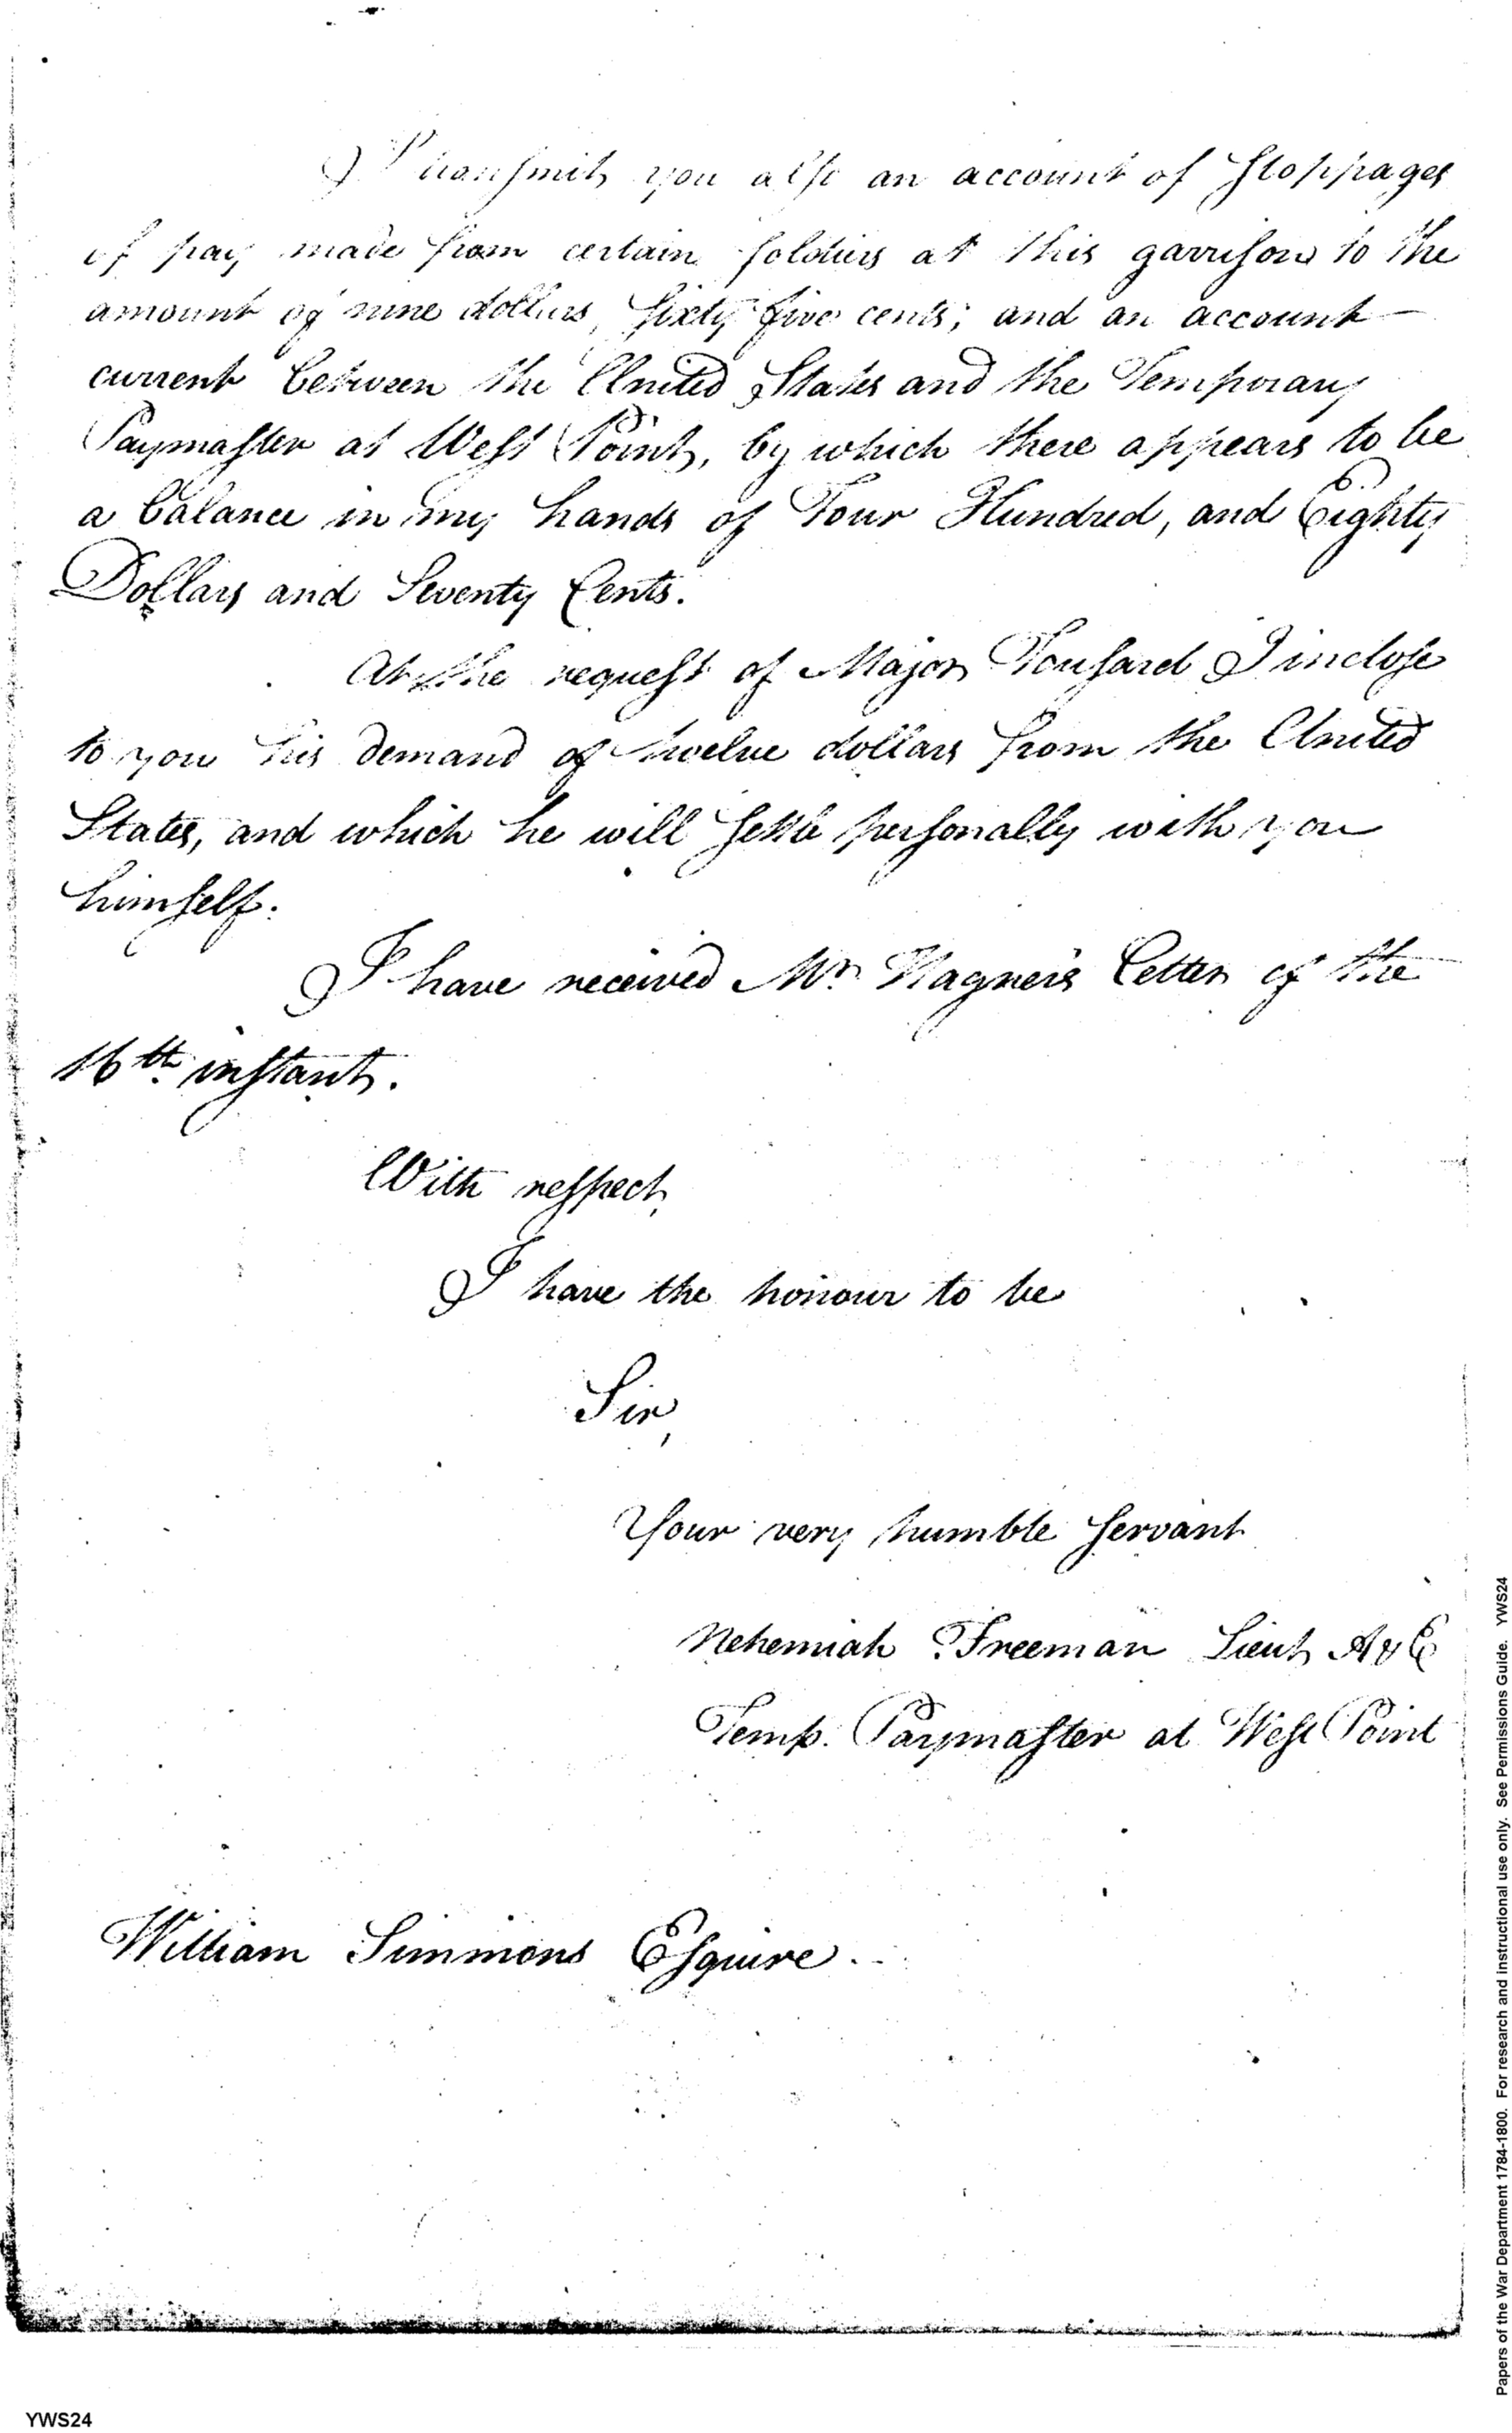 I transmit you also an account of stoppages
of pay made from certain soldiers at this garrison to the
amount of nine dollars, sixty five cents; and an account
current between the United States and the Temporary
Paymaster at West Point, by which there appears to be
a balance in my hands of Four Hundred, and Eighty
Dollars and Seventy Cents.
At the request of Major Tousard I inclose
to you his demand of twelve dollars from the United
States, and which he will settle personally with you
himself.
I have received Mr. Hagner's Letter of the
16th. instant.
With respect,
I have the honour to be
Sir,
Your very humble servant
Nehemiah Freeman Lieut A & E
Temp. Paymaster at West Point
William Simmons Esquire.
YWS24
Papers of the War Department 1784-1800. For research and instructional use only. See Permissions Guide. YWS24